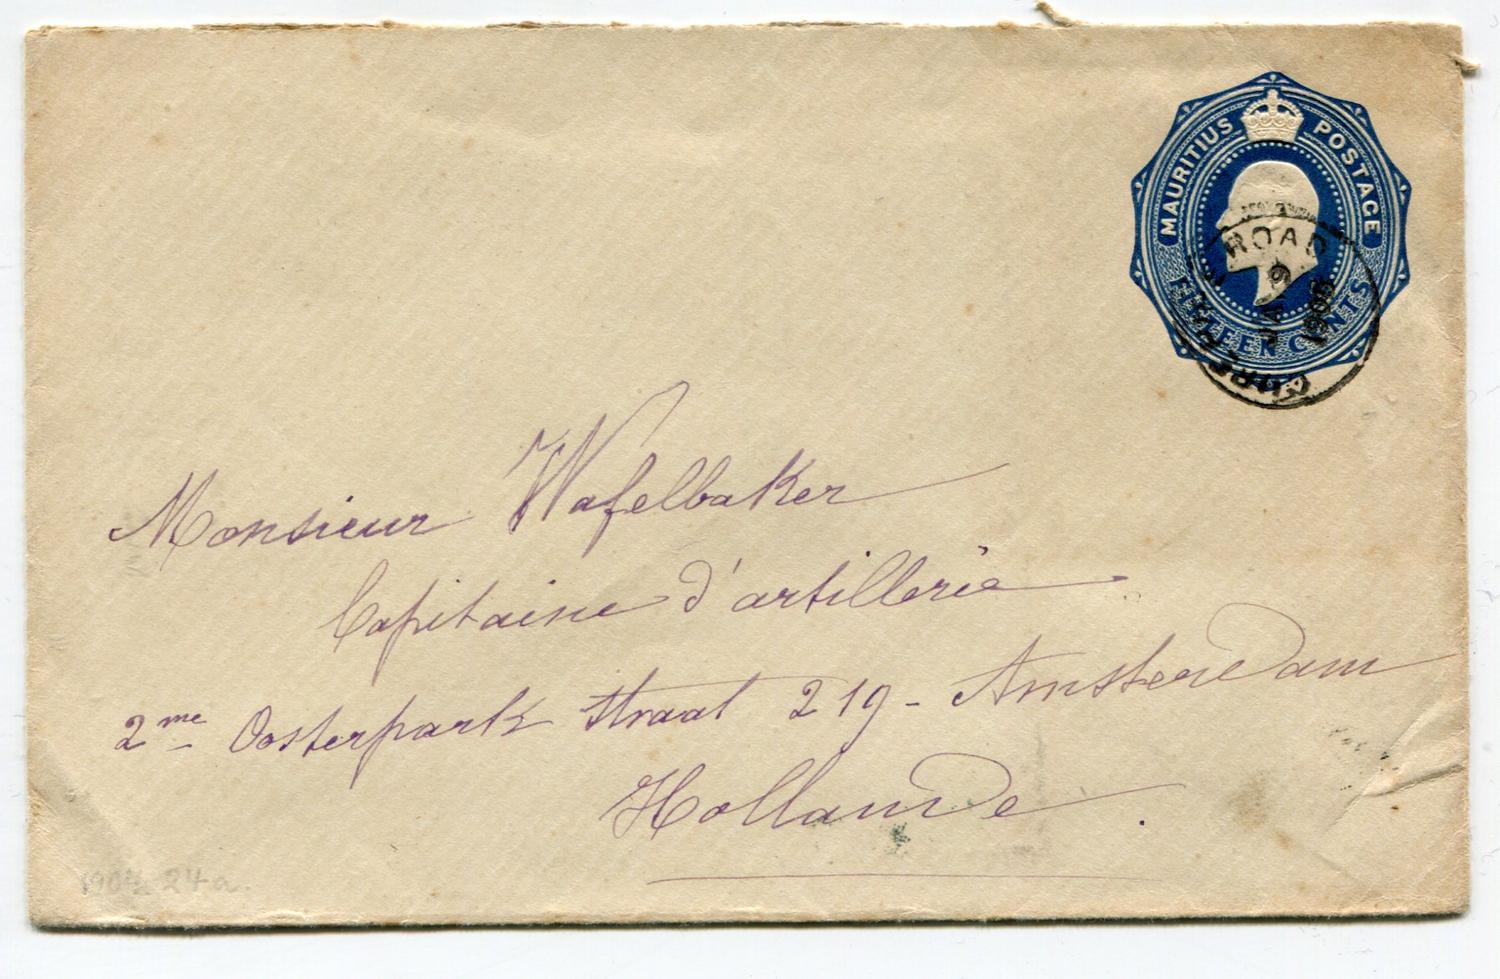 MAURITIUS POSTAGE
FIFTEEN CENTS
CUREPIPE ROAD
JA 9
Monsieur Wafelbaker
Capitaine d'artillerie
2me Oosterpark straat 219 - Amsterdam
Hollande.
24a.